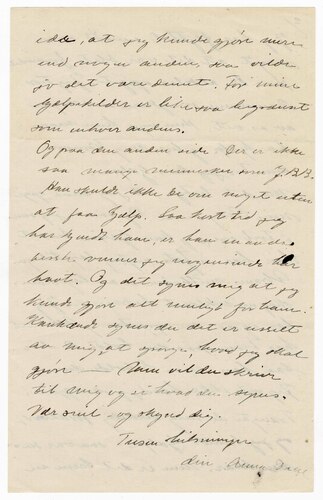 ikke, at jeg kunde gjøre mere
end nogen anden, saa vilde
jo det være dumt. For mine
hjælpekilder er lige saa begrænset
som enhver andens.
Og paa den anden side. Der er ikke
saa mange mennesker som J.B.B.
Han skulde ikke be om noget uten
at faa hjælp. Saa kort tid jeg
har kjendt ham, er han en av de
bedste venner jeg nogensinde har
havt. Og det synes mig at jeg
kunde gjøre alt muligt for ham.
Kanhænde synes du det er usselt
av mig, at spørge, hvad jeg skal
gjøre — Men vil du skrive
til mig og si hvad du synes.
Vær snil - og skynd dig.
Tusen hilsninger
din